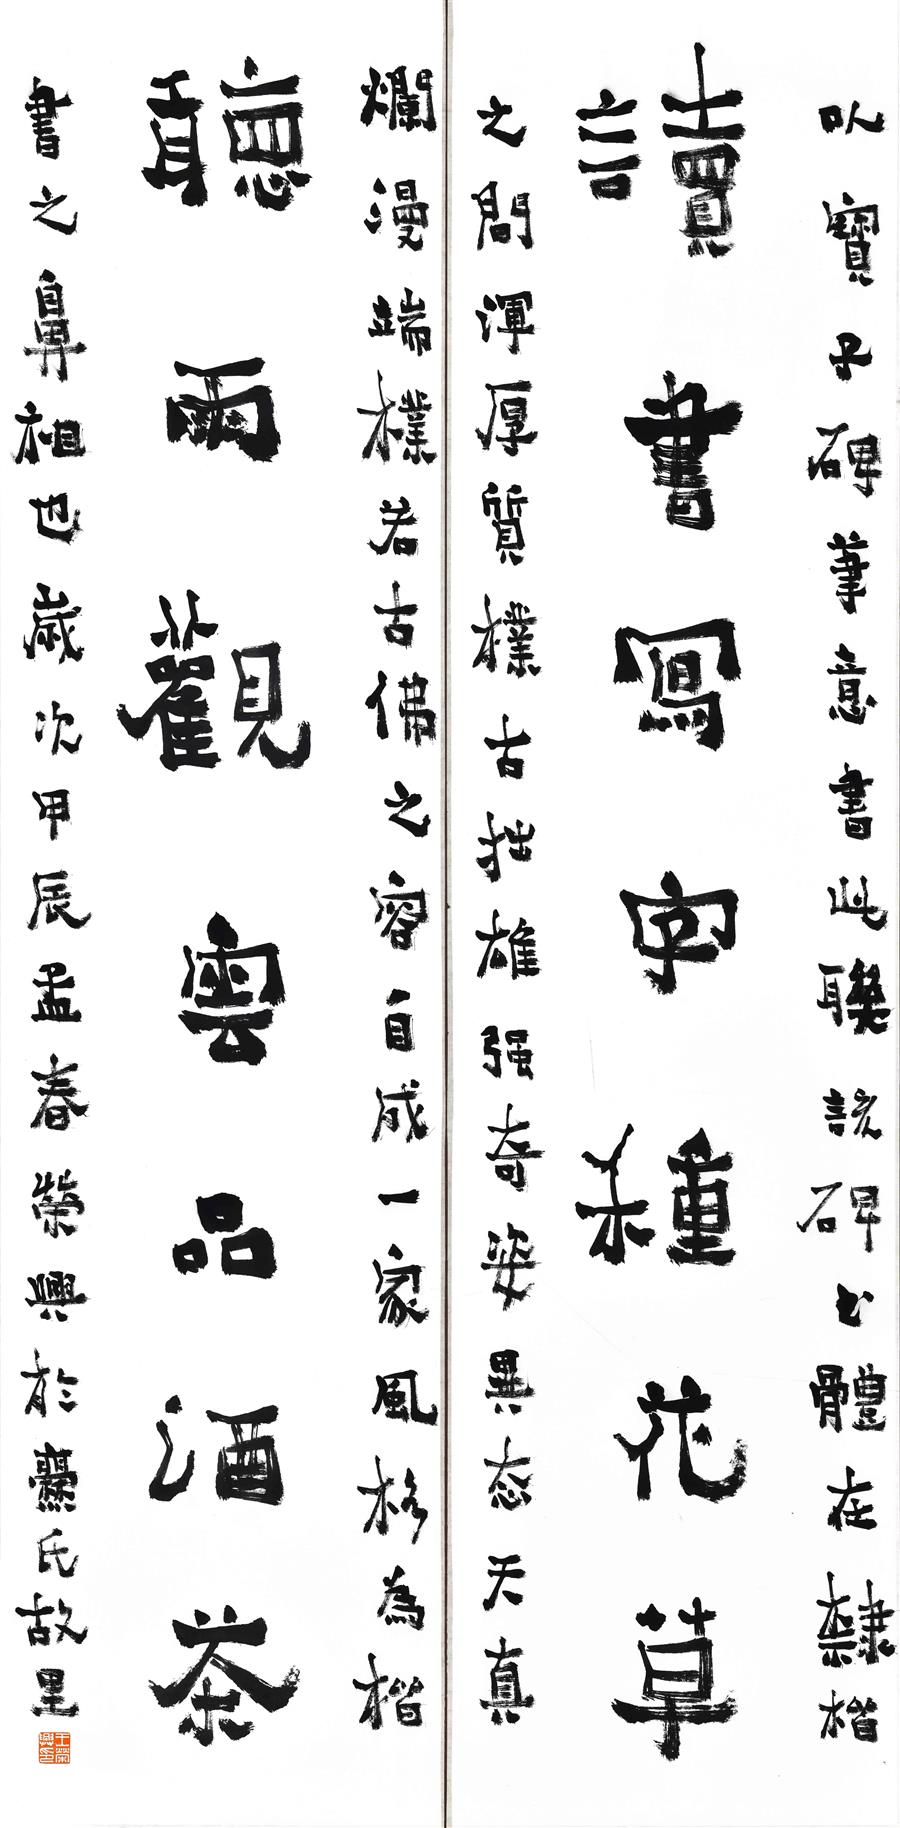 以寶子碑筆意書此聯該碑書體在隸楷
讀書寫字種花草
之間渾厚質樸古拙雄强奇姿異态天真
爛漫端樸若古佛之容自成一家風格為楷
聽雨觀雲品酒茶
書之鼻祖也歲次甲辰孟春榮興於爨氏故里
王榮興印